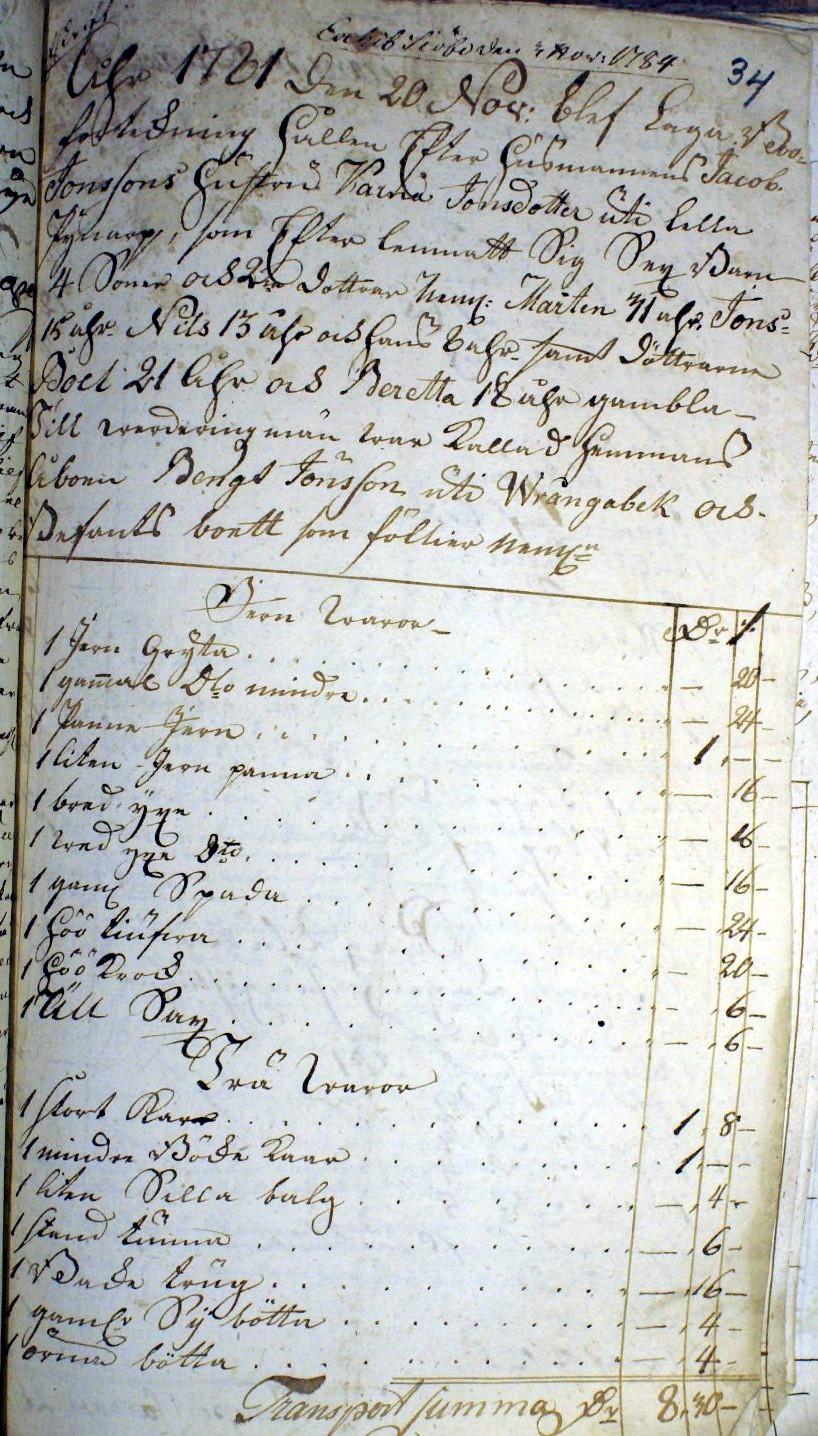 Exhib Siöbo den Nov: 1784
34
Åhr 1781 Den 20 Nov: blef Laga Boo-
forteckning hållen Efter Huusmannens Jacob
Jonssons hustru Karna Jonsdotter uti Lilla
som Efter lemnatt Sig Sex Barn
4 Söner och 2ne Döttrar neml: Mårten 31 åhr Jöns
15 åhr Nils 13 åhr och Hans 6 åhr samt döttrarna
Boel 21 Åhr och Beretta 18 åhr gambla
Till werderingsmän war Kallad hemmans
Åboen Bengt Jönsson uti Wrangabek och
Befants boett som föllier neml:n
Jern Waror
Dr s.
1 Jern Gryta - 20 -
1 gammal Dto mindre - 24 -
1 Panne Jern 1 - -
1 liten Jern panna - 16 -
1 bred yxe - 16 -
1 wed yxe Dto - 16 -
1 gaml Spada - 24 -
1 höö tiufwa - 20 -
1 höö Krock - 6 -
1 Ull Sax - 6 -
Trä Waror
1 stort Kaar 1 8 -
1 mindre Böcke Kaar 1 - -
1 liten Silla balg - 4 -
1 stand tunna - 6 -
1 Backe trug - 16 -
1 gaml Sy bötta - 4 -
1 bötta - 4 -
Transport summa Dr 8 30 -